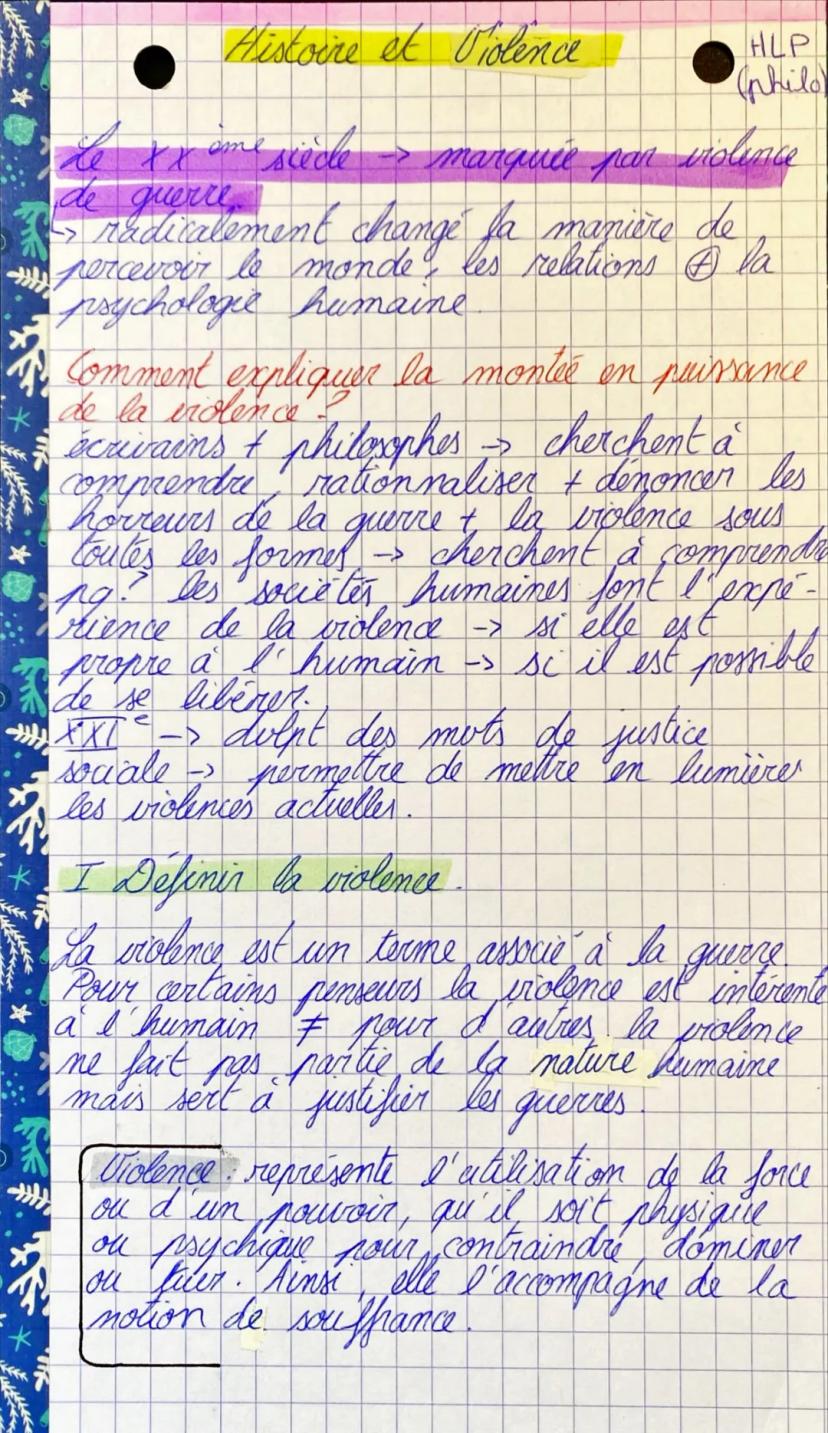 Histoire et Violence
HLP
(philo)
Le XXème siècle -> marquée par violence
de guerre
↳ radicalement changé la manière de
percevoir le monde, les relations ⊕ la
psychologie humaine.
Comment expliquer la montée en puissance
de la violence ?
écrivains + philosophes -> cherchent à
comprendre, rationnaliser + dénoncer les
horreurs de la guerre + la violence sous
toutes les formes -> cherchent à comprendre
pq? les sociétés humaines font l'expé-
rience de la violence -> si elle est
propre à l'humain -> si il est possible
de se libérer.
XXIe -> dvlpt des mots de justice
sociale -> permettre de mettre en lumières
les violences actuelles.
I Définir la violence.
La violence est un terme associé à la guerre.
Pour certains penseurs la violence est intérente
à l'humain ≠ pour d'autres la violence
ne fait pas partie de la nature humaine
mais sert à justifier les guerres.
Violence : représente l'utilisation de la force
ou d'un pouvoir, qu'il soit physique
ou psychique pour contraindre, dominer
ou tuer. Ainsi, elle l'accompagne de la
notion de souffrance.